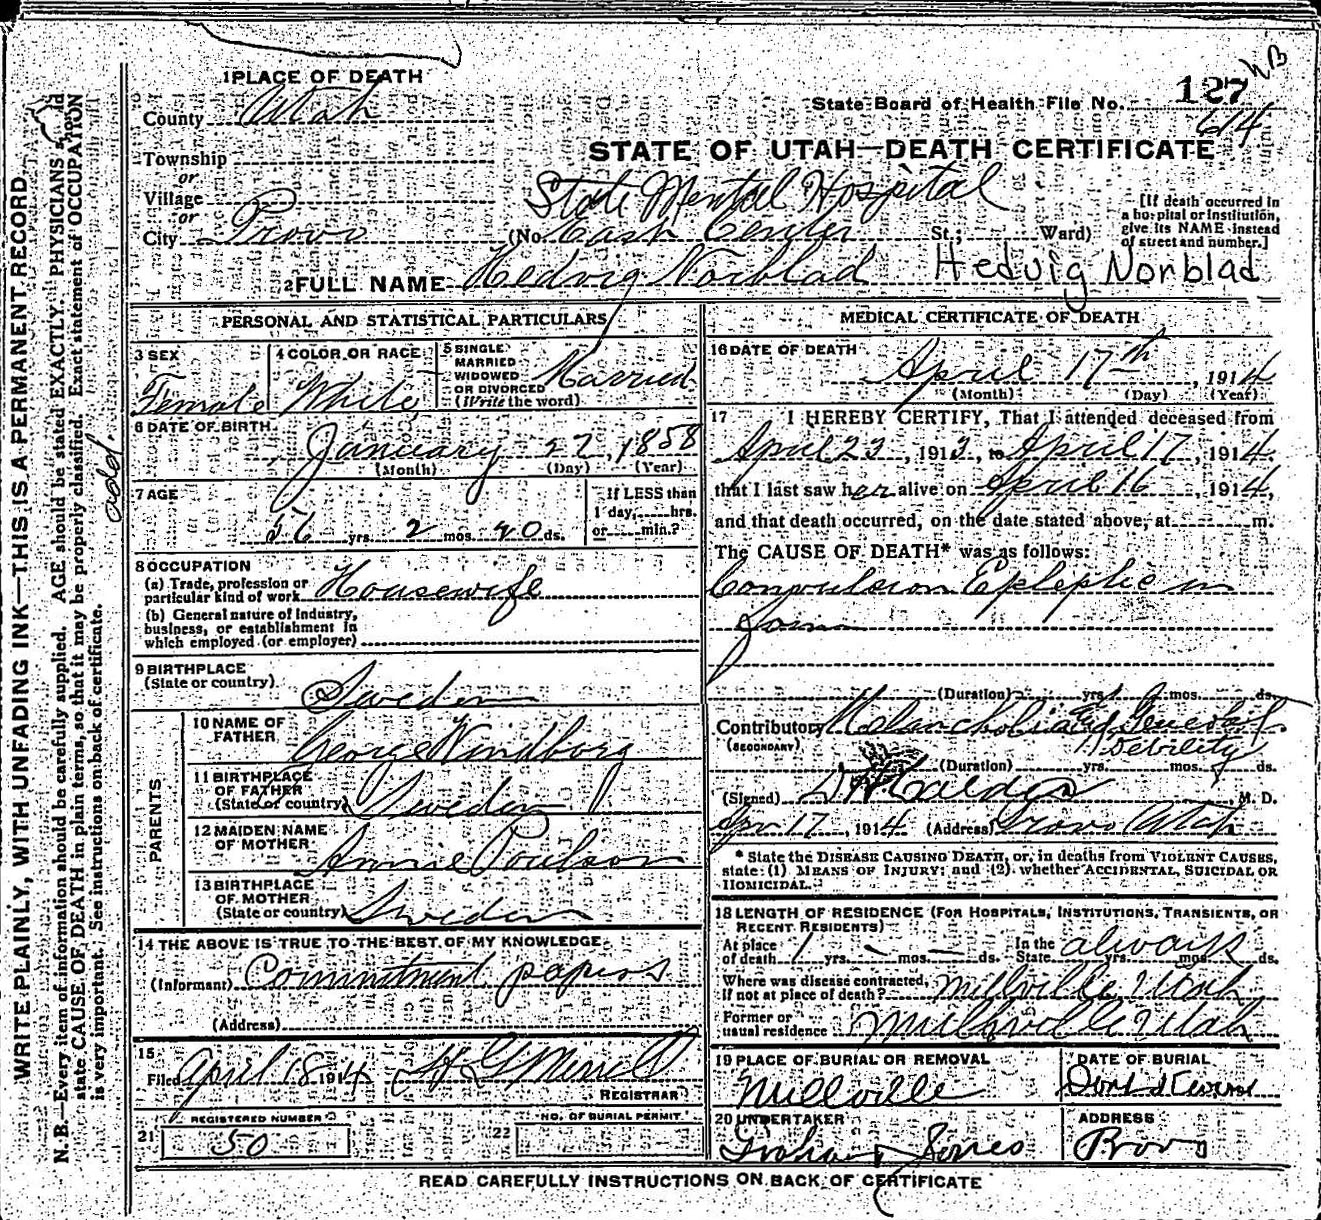 1 PLACE OF DEATH
County Utah
Township
or
Village
or
City Provo
State Board of Health File No. 127
614
STATE OF UTAH—DEATH CERTIFICATE
State Mental Hospital
(No. Center St.; Ward)
[If death occurred in
a hospital or institution,
give its NAME instead
of street and number.]
2 FULL NAME Hedvig Norblad Hedvig Norblad
PERSONAL AND STATISTICAL PARTICULARS
3 SEX
Female
4 COLOR OR RACE
White
5 SINGLE
MARRIED
WIDOWED
OR DIVORCED
(Write the word)
Married
6 DATE OF BIRTH
January 27, 1858
(Month) (Day) (Year)
7 AGE
56 yrs. 2 mos. 20 ds.
If LESS than
1 day, hrs.
or min.?
8 OCCUPATION
(a) Trade, profession or
particular kind of work Housewife
(b) General nature of industry,
business, or establishment in
which employed (or employer)
9 BIRTHPLACE
(State or country) Sweden
PARENTS
10 NAME OF
FATHER George Windborg
11 BIRTHPLACE
OF FATHER
(State or country) Sweden
12 MAIDEN NAME
OF MOTHER Annie Poulson
13 BIRTHPLACE
OF MOTHER
(State or country) Sweden
14 THE ABOVE IS TRUE TO THE BEST OF MY KNOWLEDGE
(Informant) Commitment papers
(Address)
15
Filed April 18 1914 Merrill
REGISTRAR
REGISTERED NUMBER
21 50
NO. OF BURIAL PERMIT
22
MEDICAL CERTIFICATE OF DEATH
16 DATE OF DEATH
April 17th, 1914
(Month) (Day) (Year)
17 I HEREBY CERTIFY, That I attended deceased from
April 23, 1913, to April 17, 1914,
that I last saw her alive on April 16, 1914,
and that death occurred, on the date stated above, at m.
The CAUSE OF DEATH* was as follows:
Convulsion Epleptic in
form
(Duration) yrs. mos. ds.
Contributory Melancholia and General
(SECONDARY) Debility
(Duration) yrs. mos. ds.
(Signed) Calder, M. D.
Apr 17, 1914 (Address) Provo Utah
* State the DISEASE CAUSING DEATH, or, in deaths from VIOLENT CAUSES,
state (1) MEANS OF INJURY; and (2) whether ACCIDENTAL, SUICIDAL OR
HOMICIDAL.
18 LENGTH OF RESIDENCE (FOR HOSPITALS, INSTITUTIONS, TRANSIENTS, OR
RECENT RESIDENTS)
At place
of death 1 yrs. — mos. — ds. In the
State always yrs. mos. ds.
Where was disease contracted,
if not at place of death? Millville Utah
Former or
usual residence Millville Utah
19 PLACE OF BURIAL OR REMOVAL
Millville
DATE OF BURIAL
20 UNDERTAKER
Graham Jones
ADDRESS
Provo
READ CAREFULLY INSTRUCTIONS ON BACK OF CERTIFICATE
WRITE PLAINLY, WITH UNFADING INK—THIS IS A PERMANENT RECORD
N. B.—Every item of information should be carefully supplied. AGE should be stated EXACTLY. PHYSICIANS should
state CAUSE OF DEATH in plain terms, so that it may be properly classified. Exact statement of OCCUPATION
is very important. See instructions on back of certificate.